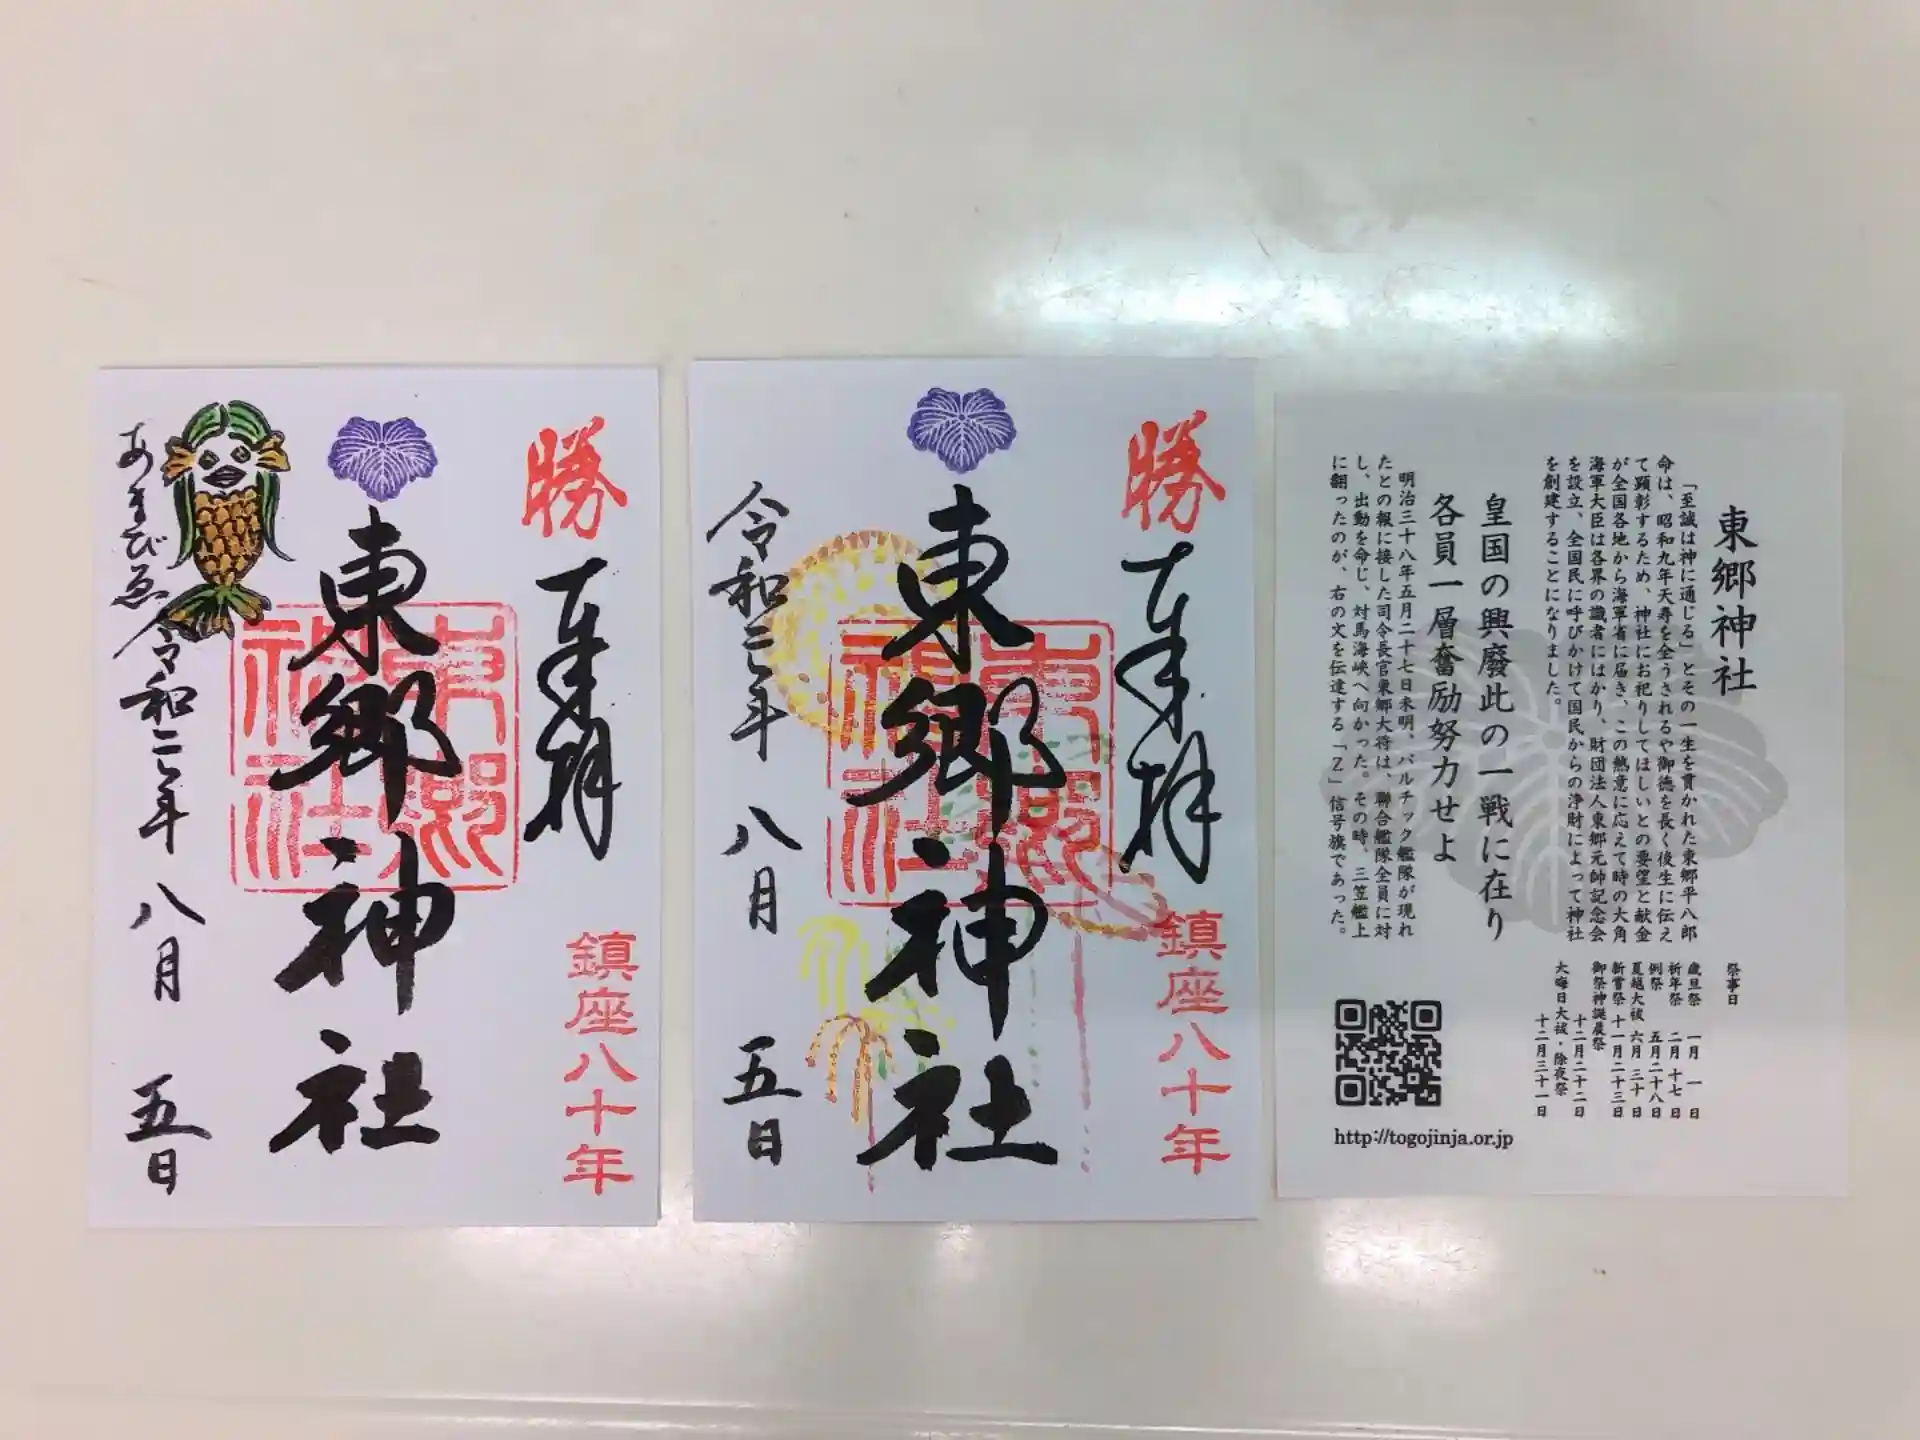 勝
奉拝
鎮座八十年
東郷神社
東郷
神社
あまびゑ
令和二年 八月 五日
勝
奉拝
鎮座八十年
東郷神社
東郷
神社
令和二年 八月 五日
東郷神社
「至誠は神に通じる」とその一生を貫かれた東郷平八郎
命は、昭和九年天寿を全うされるや御徳を長く後生に伝え
て顕彰するため、神社にお祀りしてほしいとの要望と献金
が全国各地から海軍省に届き、この熱意に応えて時の大角
海軍大臣は各界の識者にはかり、財団法人東郷元帥記念会
を設立、全国民に呼びかけて国民からの浄財によって神社
を創建することになりました。
皇国の興廃此の一戦に在り
各員一層奮励努力せよ
明治三十八年五月二十七日未明、バルチック艦隊が現れ
たとの報に接した司令長官東郷大将は、聯合艦隊全員に対
し、出動を命じ、対馬海峡へ向かった。その時、三笠艦上
に翻ったのが、右の文を伝達する「Z」信号旗であった。
祭事日
歳旦祭 一月 一日
祈年祭 二月 十七日
例祭 五月二十八日
夏越大祓 六月 三十日
新嘗祭 十一月二十三日
御祭神誕辰祭
十二月二十二日
大晦日大祓・除夜祭
十二月三十一日
http://togojinja.or.jp